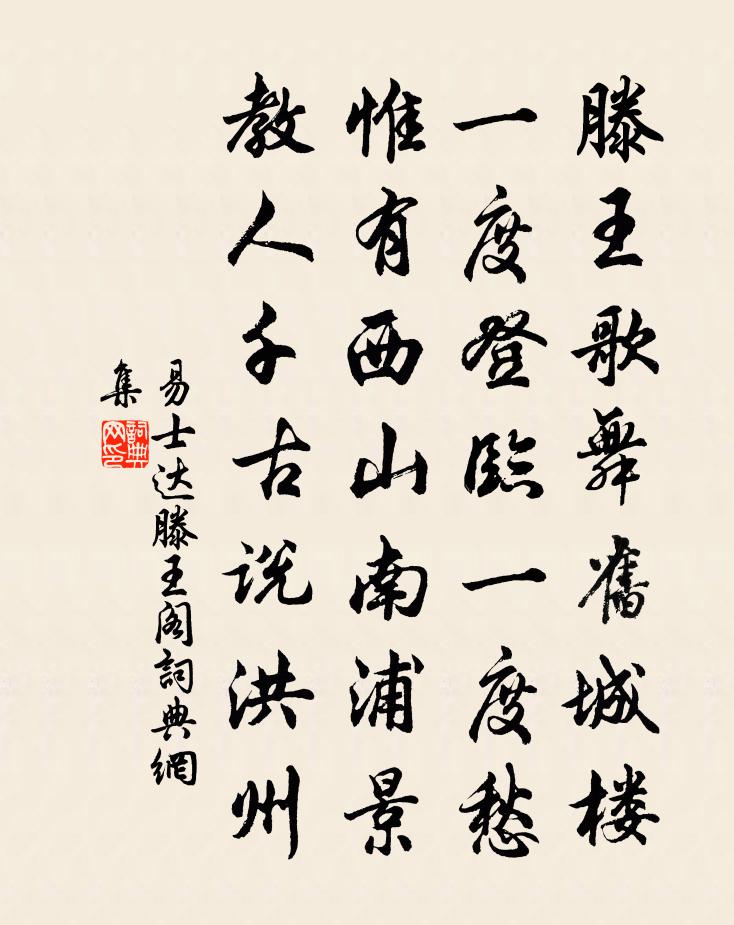 滕王歌舞舊城楼
一度登臨一度愁
惟有西山南浦景
教人千古说洪州
易士达滕王阁詞典網
集
詞典
网印